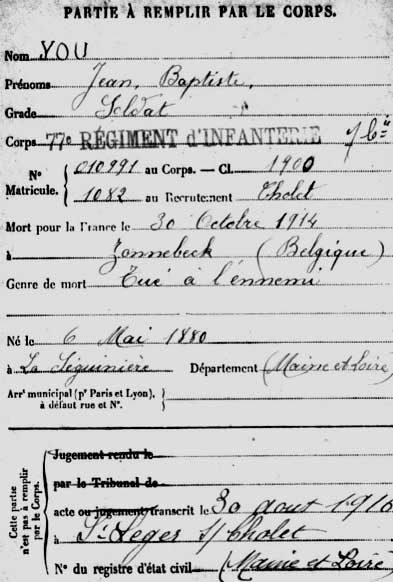 PARTIE À REMPLIR PAR LE CORPS.
Nom YOU
Prénoms Jean, Baptiste,
Grade Soldat
Corps 77e RÉGIMENT d'INFANTERIE
N° Matricule. { 010991 au Corps. — Cl. 1900
1082 au Recrutement Cholet
Mort pour la France le 30 Octobre 1914
à Zonnebeck (Belgique)
Genre de mort Tué à l'ennemi
Né le 6 Mai 1880
à La Séguinière Département (Maine et Loire)
Arrt municipal (pr Paris et Lyon), à défaut rue et N°. }
Cette partie n'est pas à remplir par le Corps.
Jugement rendu le
par le Tribunal de
acte ou jugement transcrit le 30 août 1916
à St Leger s/ Cholet
N° du registre d'état civil (Maine et Loire)